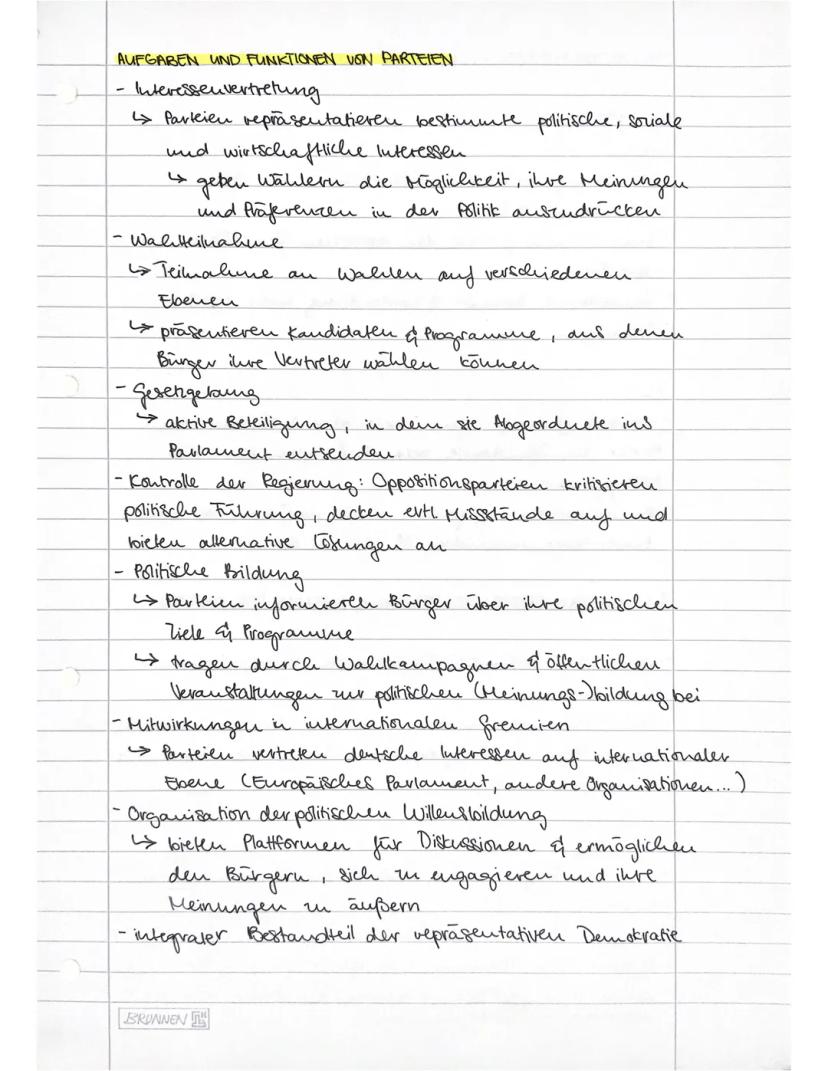 AUFGABEN UND FUNKTIONEN VON PARTEIEN
- Interessenvertretung
↳ Parteien repräsentatieren bestimmte politische, soziale
und wirtschaftliche Interessen
↳ geben Wählern die Möglichkeit, ihre Meinungen
und Präferenzen in der Politik auszudrücken
- Wahlteilnahme
↳ Teilnahme an Wahlen auf verschiedenen
Ebenen
↳ präsentieren Kandidaten & Programme, aus denen
Bürger ihre Vertreter wählen können
- Gesetzgebung
↳ aktive Beteiligung, in dem sie Abgeordnete ins
Parlament entsenden
- Kontrolle der Regierung: Oppositionsparteien kritisieren
politische Führung, decken evtl. Missstände auf und
bieten alternative Lösungen an
- Politische Bildung
↳ Parteien informieren Bürger über ihre politischen
Ziele & Programme
↳ tragen durch Wahlkampagnen & öffentlichen
Veranstaltungen zur politischen (Meinungs-)bildung bei
- Mitwirkungen in internationalen Gremien
↳ Parteien vertreten deutsche Interessen auf internationaler
Ebene (Europäisches Parlament, andere Organisationen...)
- Organisation der politischen Willensbildung
↳ bieten Plattformen für Diskussionen & ermöglichen
den Bürgern, sich zu engagieren und ihre
Meinungen zu äußern
- integraler Bestandteil der repräsentativen Demokratie
BRUNNEN